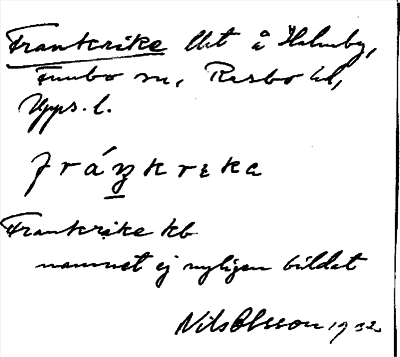 Frankrike lht å Holmby,
Funbo sn, Rasbo hd,
Upps. l.
fráŋkrɛka
Frankrike kb
namnet ej nyligen bildat
Nils Olsson 1932